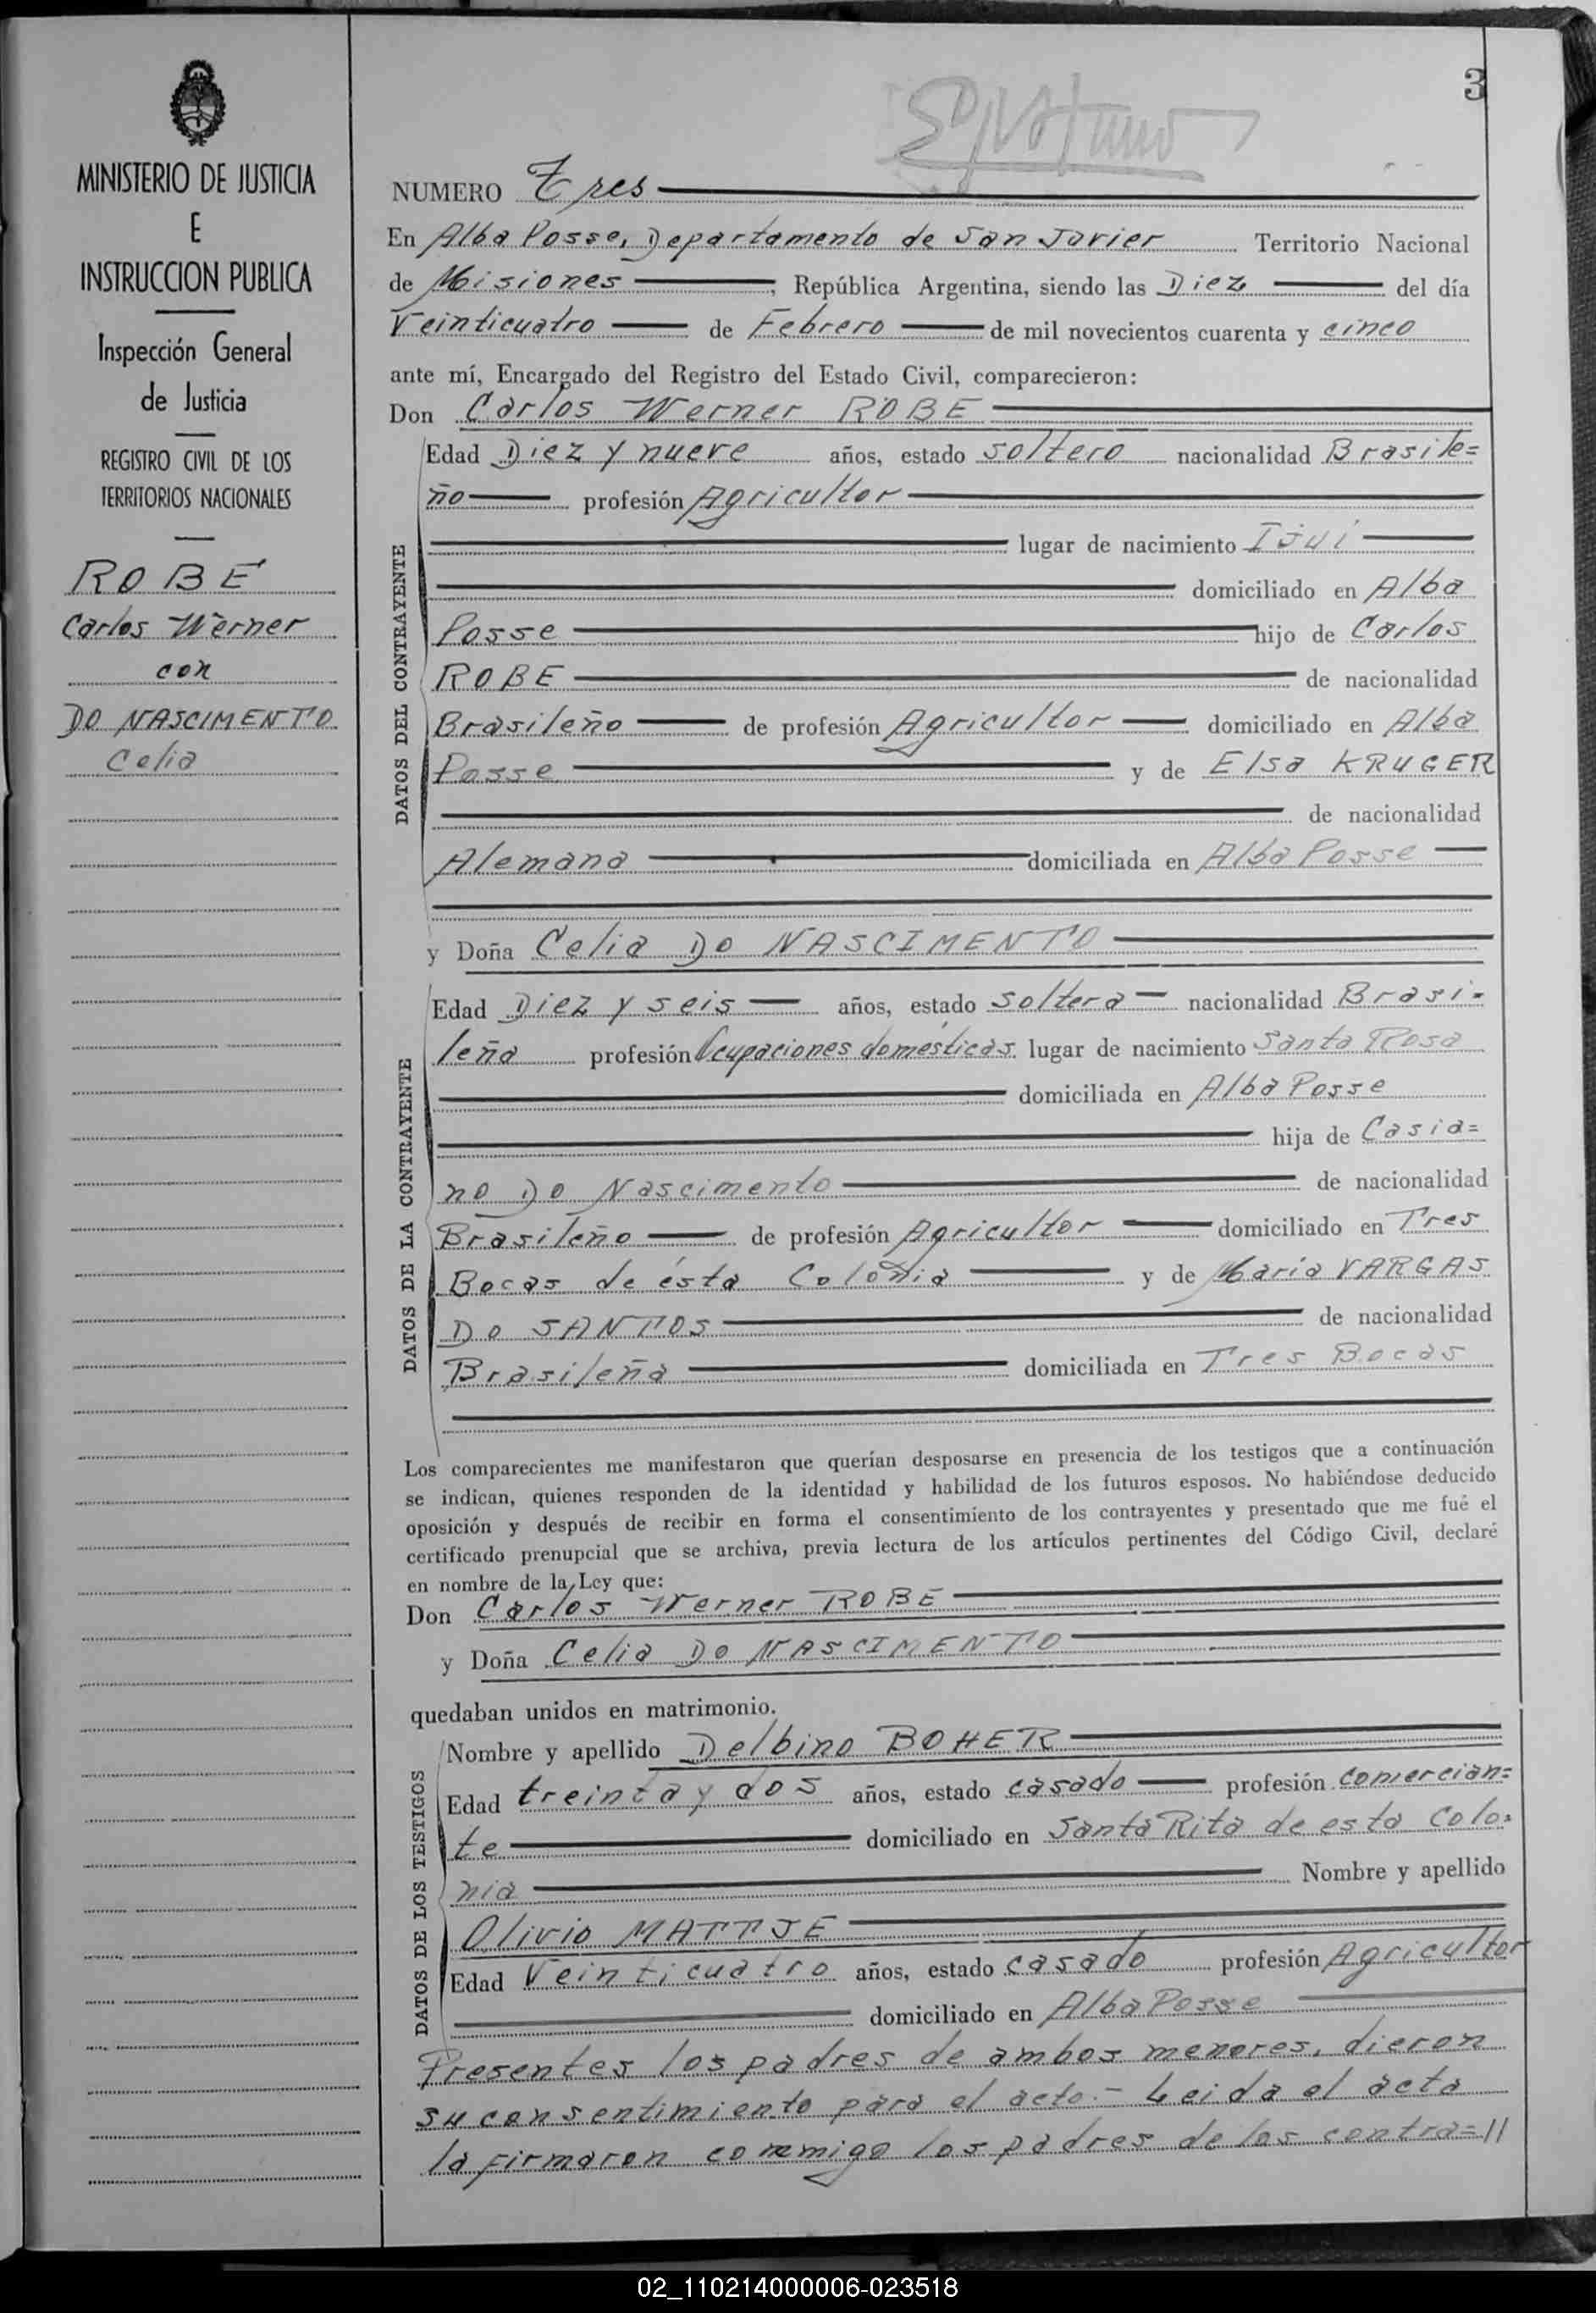 3
MINISTERIO DE JUSTICIA
E
INSTRUCCION PUBLICA
Inspección General
de Justicia
REGISTRO CIVIL DE LOS
TERRITORIOS NACIONALES
ROBE
Carlos Werner
con
DO NASCIMENTO
Celia
NUMERO Tres
En Alba Posse, Departamento de San Javier Territorio Nacional
de Misiones, República Argentina, siendo las Diez del día
Veinticuatro de Febrero de mil novecientos cuarenta y cinco
ante mí, Encargado del Registro del Estado Civil, comparecieron:
Don Carlos Werner ROBE
DATOS DEL CONTRAYENTE
Edad Diez y nueve años, estado soltero nacionalidad Brasile=
ño profesión Agricultor
lugar de nacimiento Ijui
domiciliado en Alba
Posse hijo de Carlos
ROBE de nacionalidad
Brasileño de profesión Agricultor domiciliado en Alba
Posse y de Elsa KRUGER
de nacionalidad
Alemana domiciliada en Alba Posse
y Doña Celia DO NASCIMENTO
DATOS DE LA CONTRAYENTE
Edad Diez y seis años, estado soltera nacionalidad Brasi=
leña profesión Ocupaciones domésticas lugar de nacimiento Santa Rosa
domiciliada en Alba Posse
hija de Casia=
no Do Nascimento de nacionalidad
Brasileño de profesión Agricultor domiciliado en Tres
Bocas de ésta Colonia y de Maria VARGAS
DO SANTOS de nacionalidad
Brasileña domiciliada en Tres Bocas
Los comparecientes me manifestaron que querían desposarse en presencia de los testigos que a continuación
se indican, quienes responden de la identidad y habilidad de los futuros esposos. No habiéndose deducido
oposición y después de recibir en forma el consentimiento de los contrayentes y presentado que me fué el
certificado prenupcial que se archiva, previa lectura de los artículos pertinentes del Código Civil, declaré
en nombre de la Ley que:
Don Carlos Werner ROBE
y Doña Celia DO NASCIMENTO
quedaban unidos en matrimonio.
DATOS DE LOS TESTIGOS
Nombre y apellido Delbino BOHER
Edad treinta y dos años, estado casado profesión comercian=
te domiciliado en Santa Rita de esta Colo=
nia Nombre y apellido
Olivio MATTJE
Edad Veinticuatro años, estado casado profesión Agricultor
domiciliado en Alba Posse
Presentes los padres de ambos menores, dieron
su consentimiento para el acto.- Leida el acta
la firmaron conmigo los padres de los contra=//
02_110214000006-023518